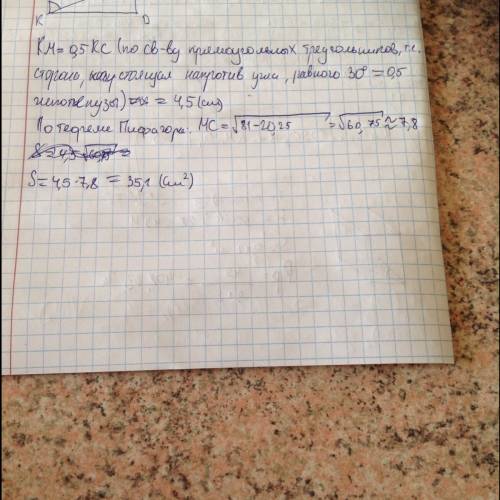 K D
KM = 0,5 KC (по св-ву прямоугольных треугольников, т.к.
сторона, стоящая напротив угла, равного 30° = 0,5
гипотенузы) = 4,5 (см)
По теореме Пифагора: MC = √81-20,25 = √60,75 ≈ 7,8
S = 4,5 · 7,8 = 35,1 (см²)